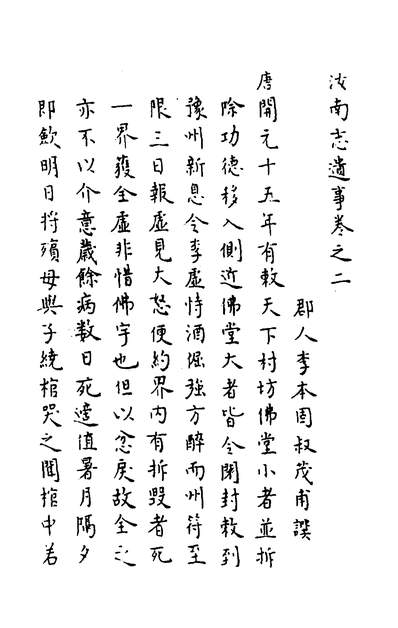 汝南志遺事卷之二
郡人李本固叔茂甫譔
唐開元十五年有敕天下村坊佛堂小者並拆
除功德移入側近佛堂大者皆令閉封敕到
豫州新息令李虛恃酒倔強方醉而州符至
限三日報虛見大怒便約界內有拆毀者死
一界獲全虛非惜佛宇也但以忿戾故全之
亦不以介意歲餘病数日死適值暑月隔夕
即歛明日將殯母與子繞棺哭之聞棺中若